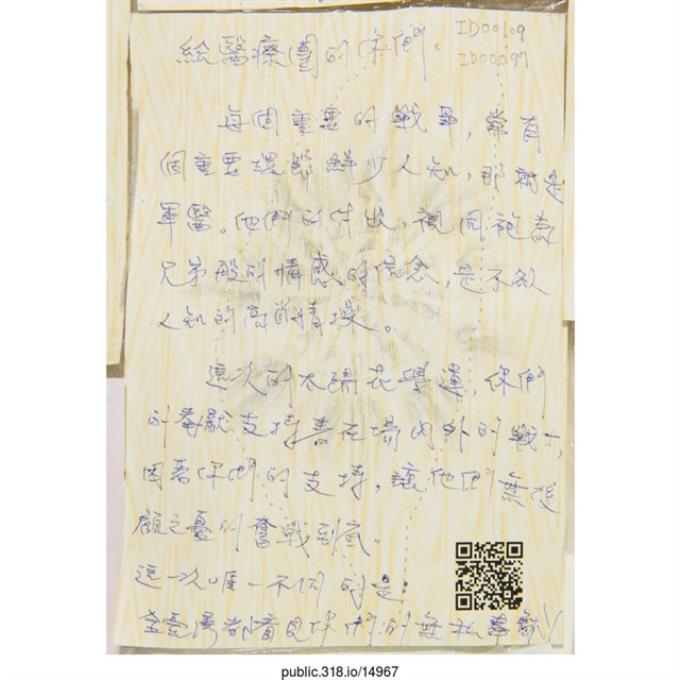 給醫療團的你們。
ID00109
ID00097
每個重要的戰爭,常有
個重要環節鮮少人知,那就是
軍醫。他們的付出,視同袍為
兄弟般的情感的信念,是不欲
人知的高尚情操。
這次的太陽花學運,你們
的奉獻支持著在場內外的戰士,
因著你們的支持,讓他們無後
顧之憂的奮戰到底。
這一次唯一不同的是:
全臺灣都看見你們的無私奉獻!
public.318.io/14967